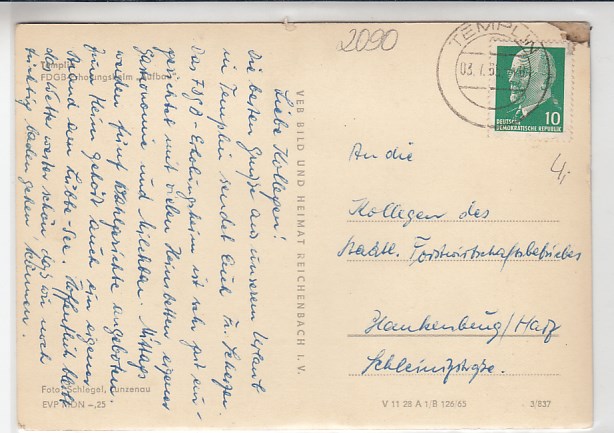 2090
TEMPLIN
03.7.
DEUTSCHE
DEMOKRATISCHE REPUBLIK
10
4,-
Templin
FDGB-Erholungsheim
Liebe Kollegen!
Die besten Grüße aus unserem Urlaub
in Templin sendet Euch
Das FDGB-Erholungsheim ist sehr gut ein-
gerichtet mit vielen Heimbetten eigener
Gastronomie und Milchbar. Mittags
werden fünf Wahlgerichte angeboten.
Zum Heim gehört auch ein eigener
Strand am Lübbe-See. Hoffentlich bleibt
das Wetter weiter schön, daß wir noch
tüchtig baden gehen können.
VEB BILD UND HEIMAT REICHENBACH I. V.
An die
Kollegen des
Staatl. Forstwirtschaftsbetriebes
Blankenburg/Harz
Foto: Schlegel, Lunzenau
EVP MDN -,25
V 11 28 A 1/B 126/65
3/837